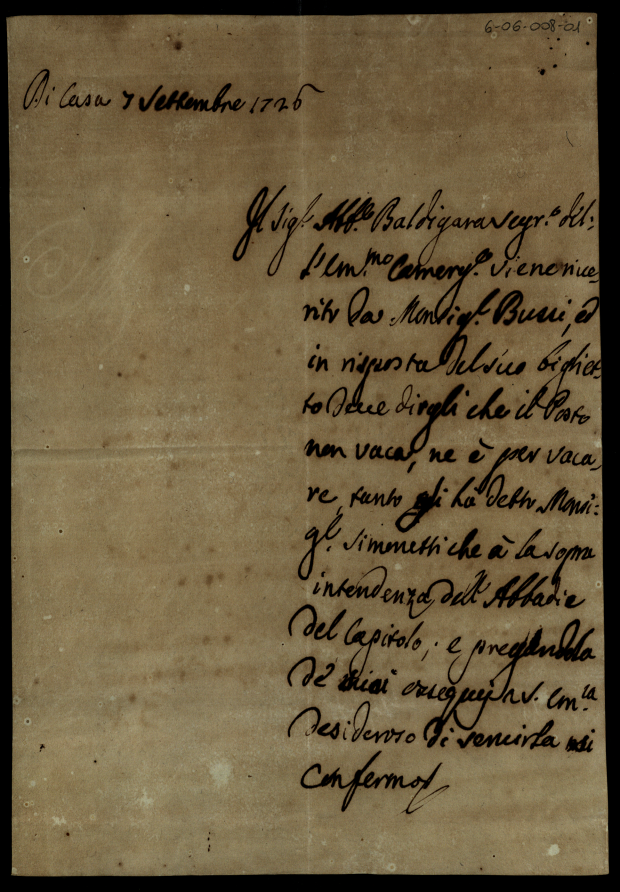 6-06-008-01
Di Casa 7 Settembre 1726
Il Sig.r Abb.e Baldigara segr.o del:
l'Em.mo Camerg.o viene rive,
rito da Monsig.r Bussi, ed
in risposta del suo bigliet:
to deve dirgli che il Posto
non vaca, ne è per vaca,
re, tanto gli ha detto Monsi:
g.r Simonetti che à la sopra
intendenza dell' Abbadie
del Capitolo; e pregandola
de' miei ossequij a S. Em.za
desideroso di servirla mi
Confermo